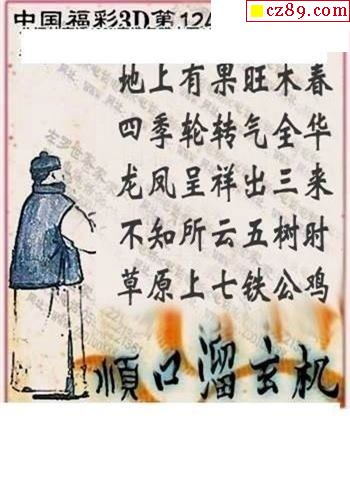 cz89.com
中国福彩3D第124
地上有果旺木春
四季轮转气全华
龙凤呈祥出三来
不知所云五树时
草原上七铁公鸡
順口溜玄机